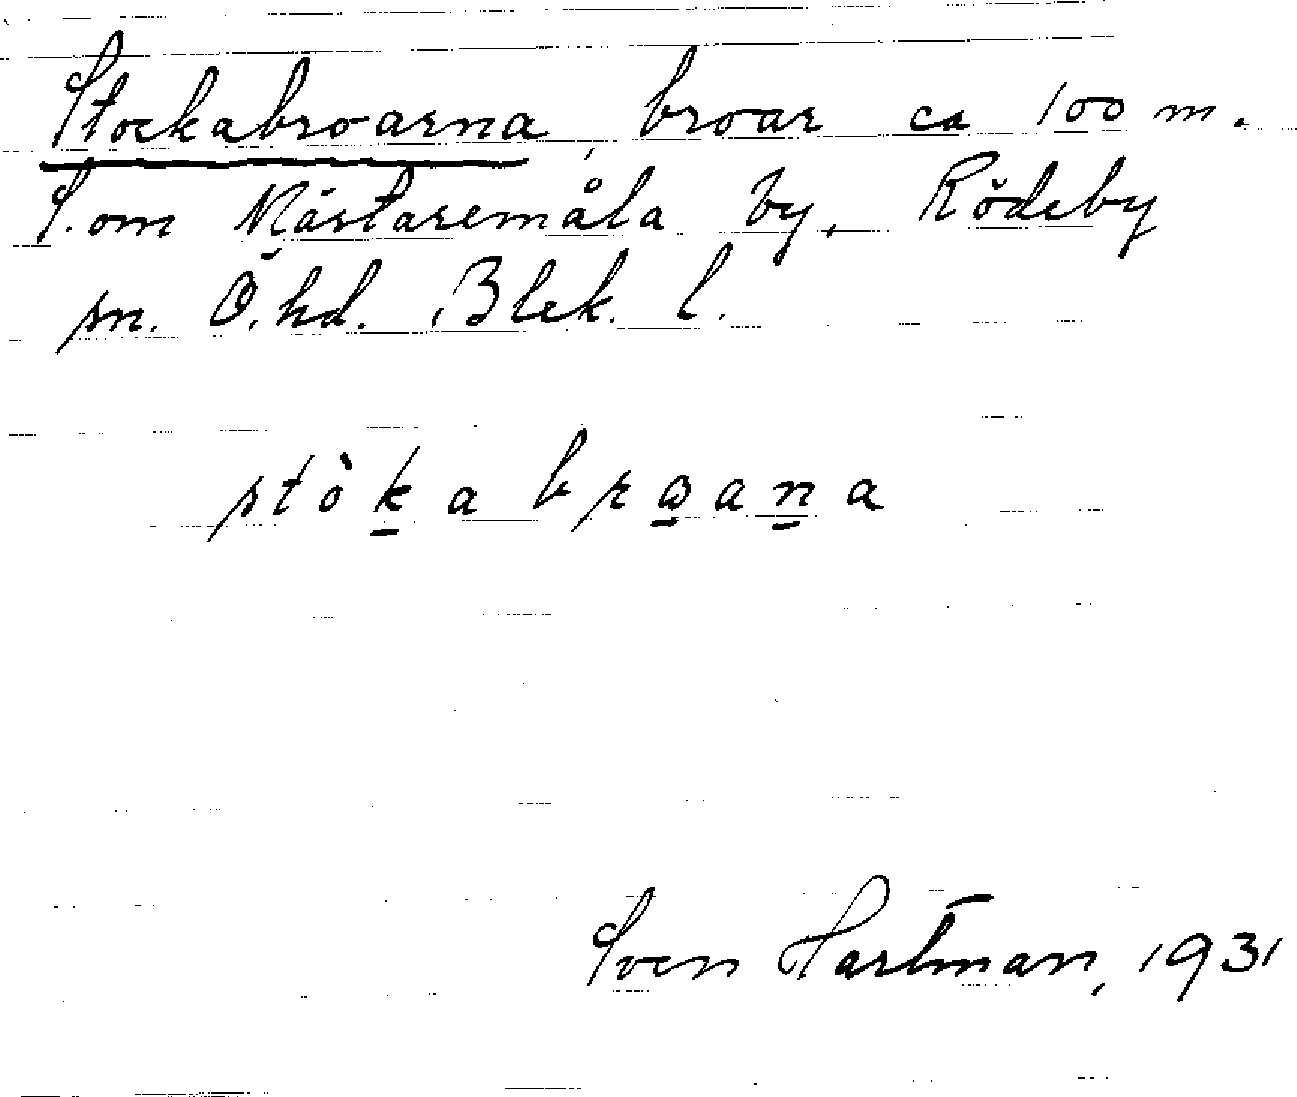 Stockabroarna, broar ca 100 m.
S. om Mårtaremåla by, Rödeby
sn. Ö. hd. Blek. l.
stòkabroana
Sven Hartman, 1931